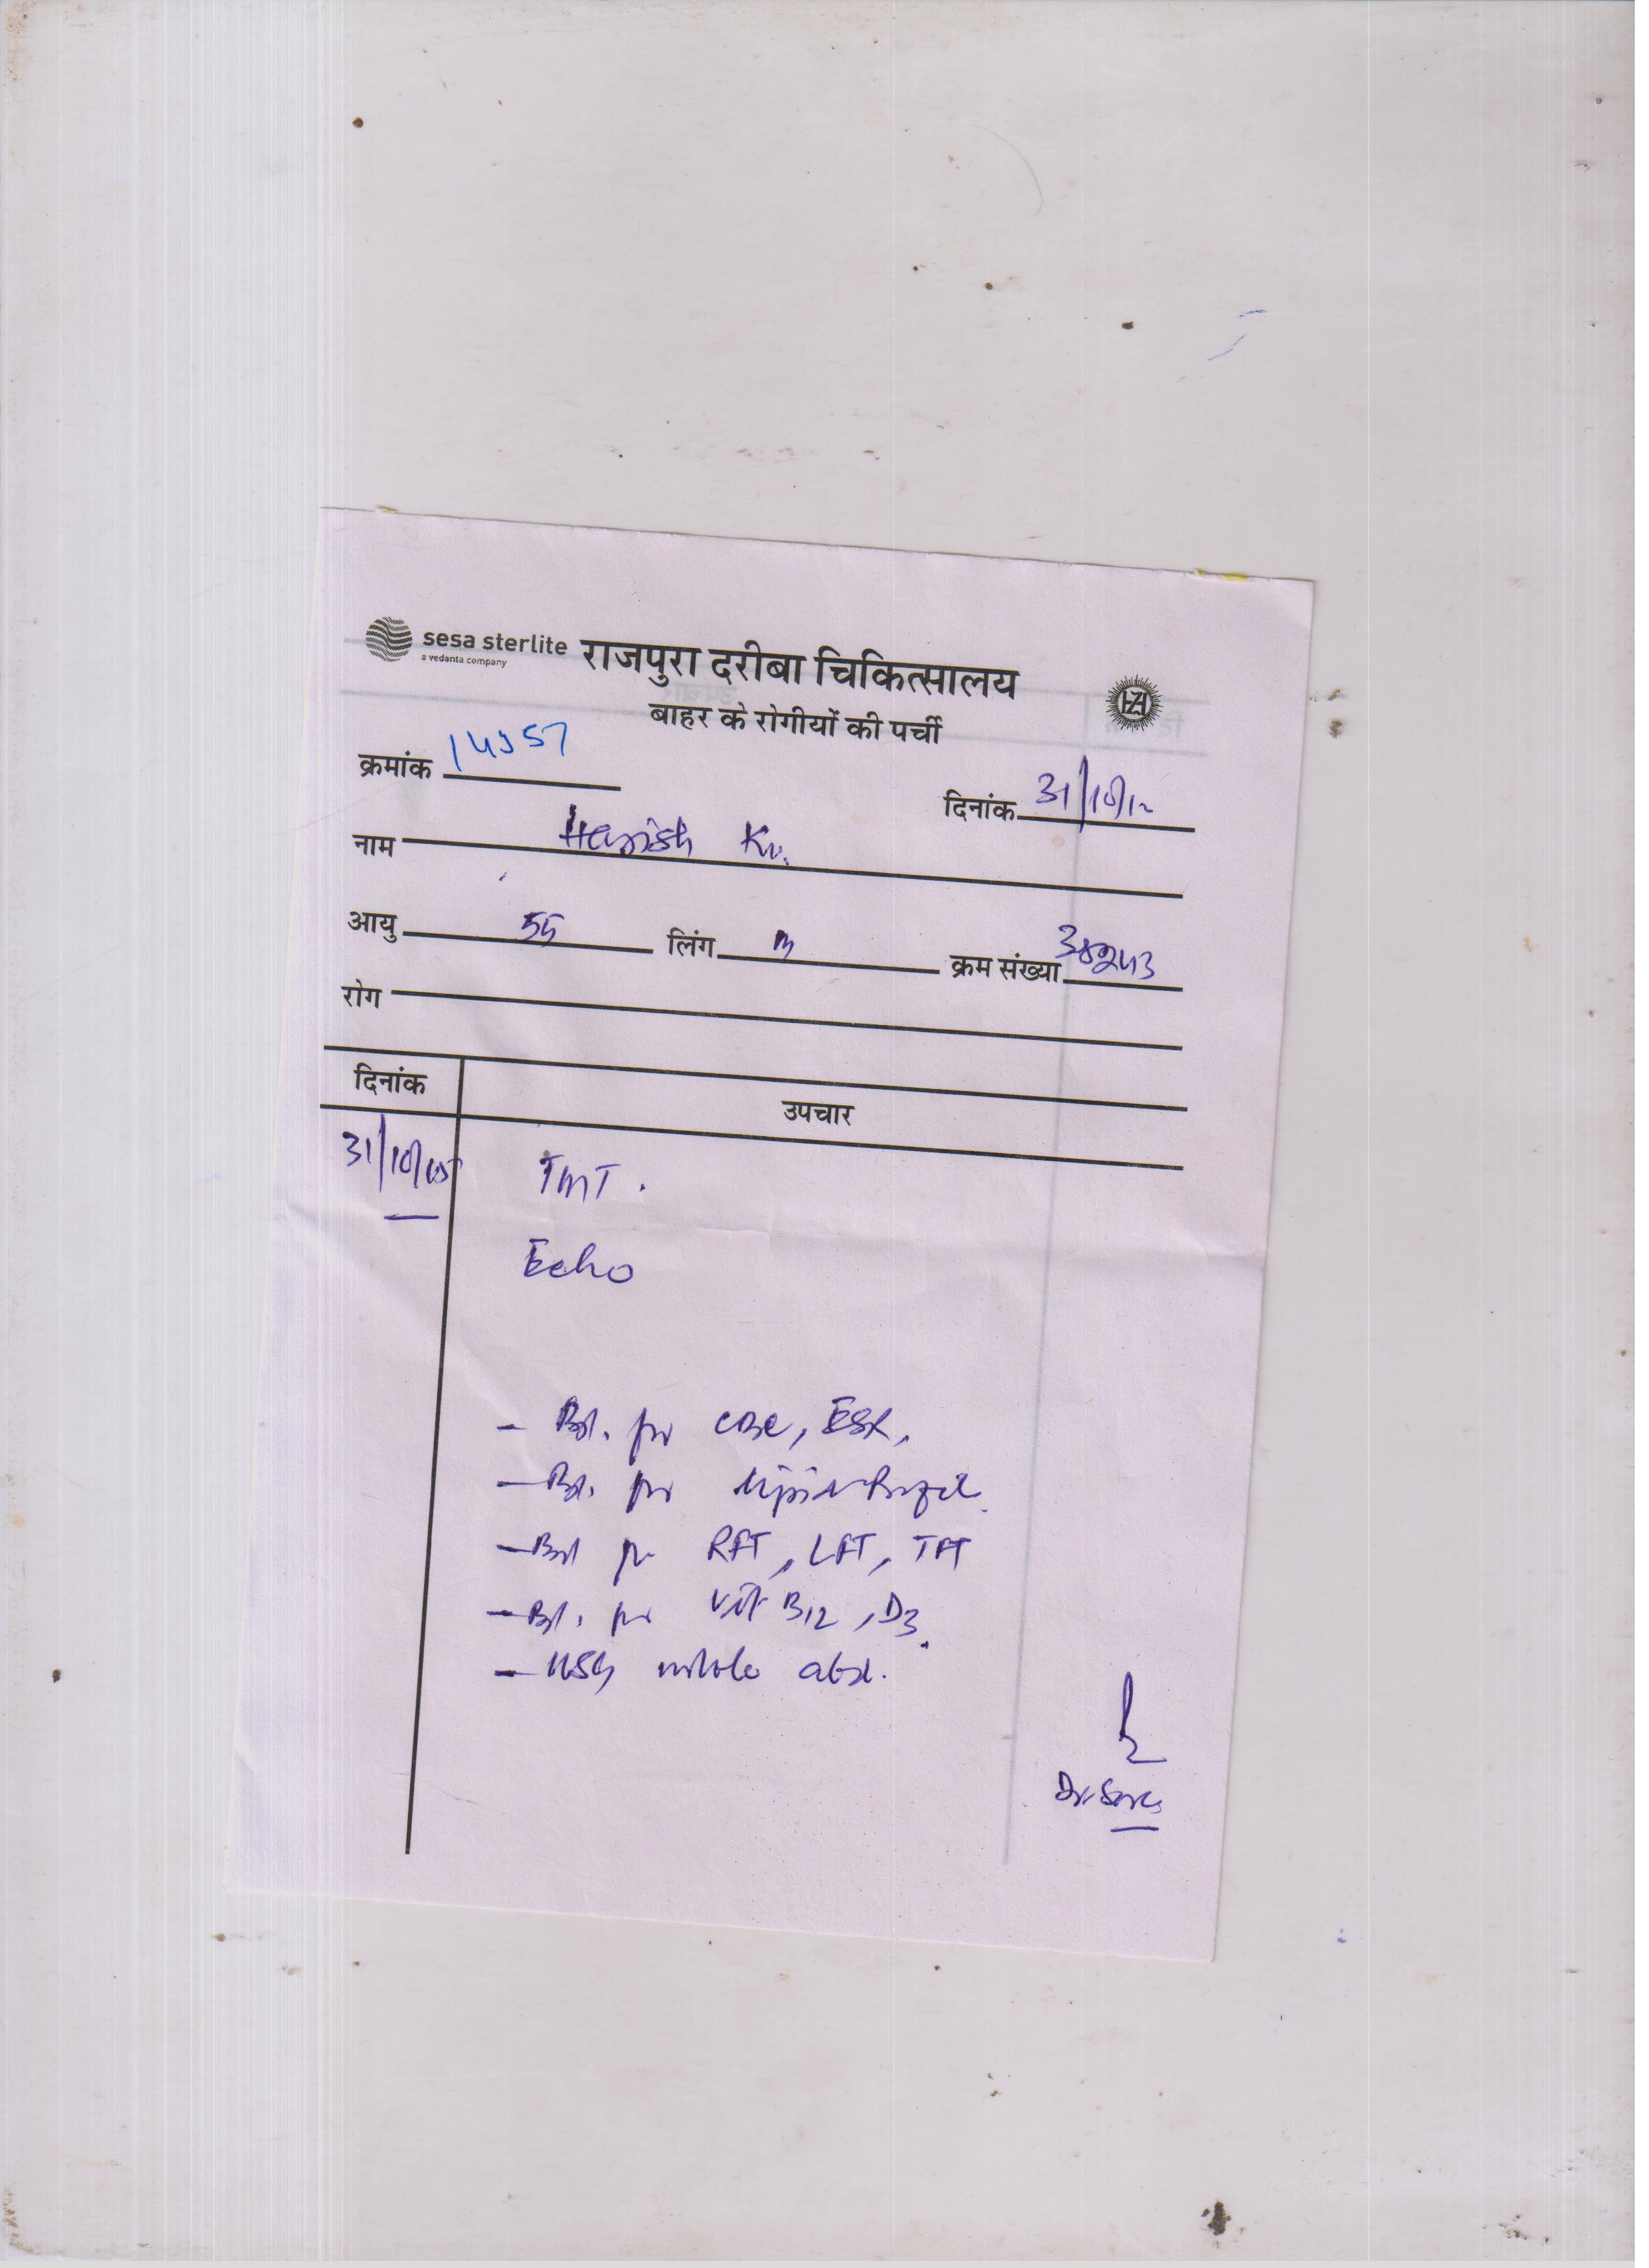 sesa sterlite
a vedanta company
राजपुरा दरीबा चिकित्सालय
बाहर के रोगीयों की पर्ची
क्रमांक
दिनांक 31/10/
नाम Harish Kr.
आयु 55 लिंग M क्रम संख्या 38243
रोग
दिनांक उपचार
31/10/15 TMT.
Echo
- Bl. for CBC, ESR,
- Bl. for Lipid Profile
- Bl for RFT, LFT, TFT
- Bl. for Vit B12, D3.
- USG whole abd.
Dr.